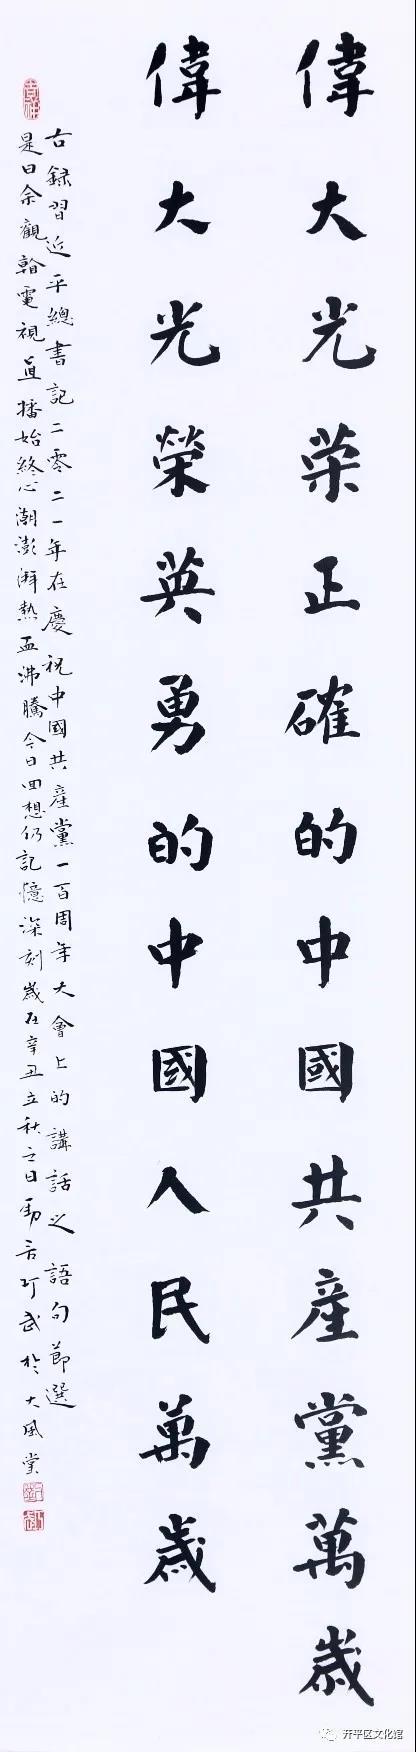 偉大光荣正確的中國共產黨萬歲
偉大光榮英勇的中國人民萬歲
右録習近平總書記二零二一年在慶祝中國共產黨一百周年大會上的講話之語句節選
是日余觀看電視直播始終心潮澎湃熱血沸騰今日回想仍記憶深刻歲在辛丑立秋之日 於大風堂
开平区文化馆